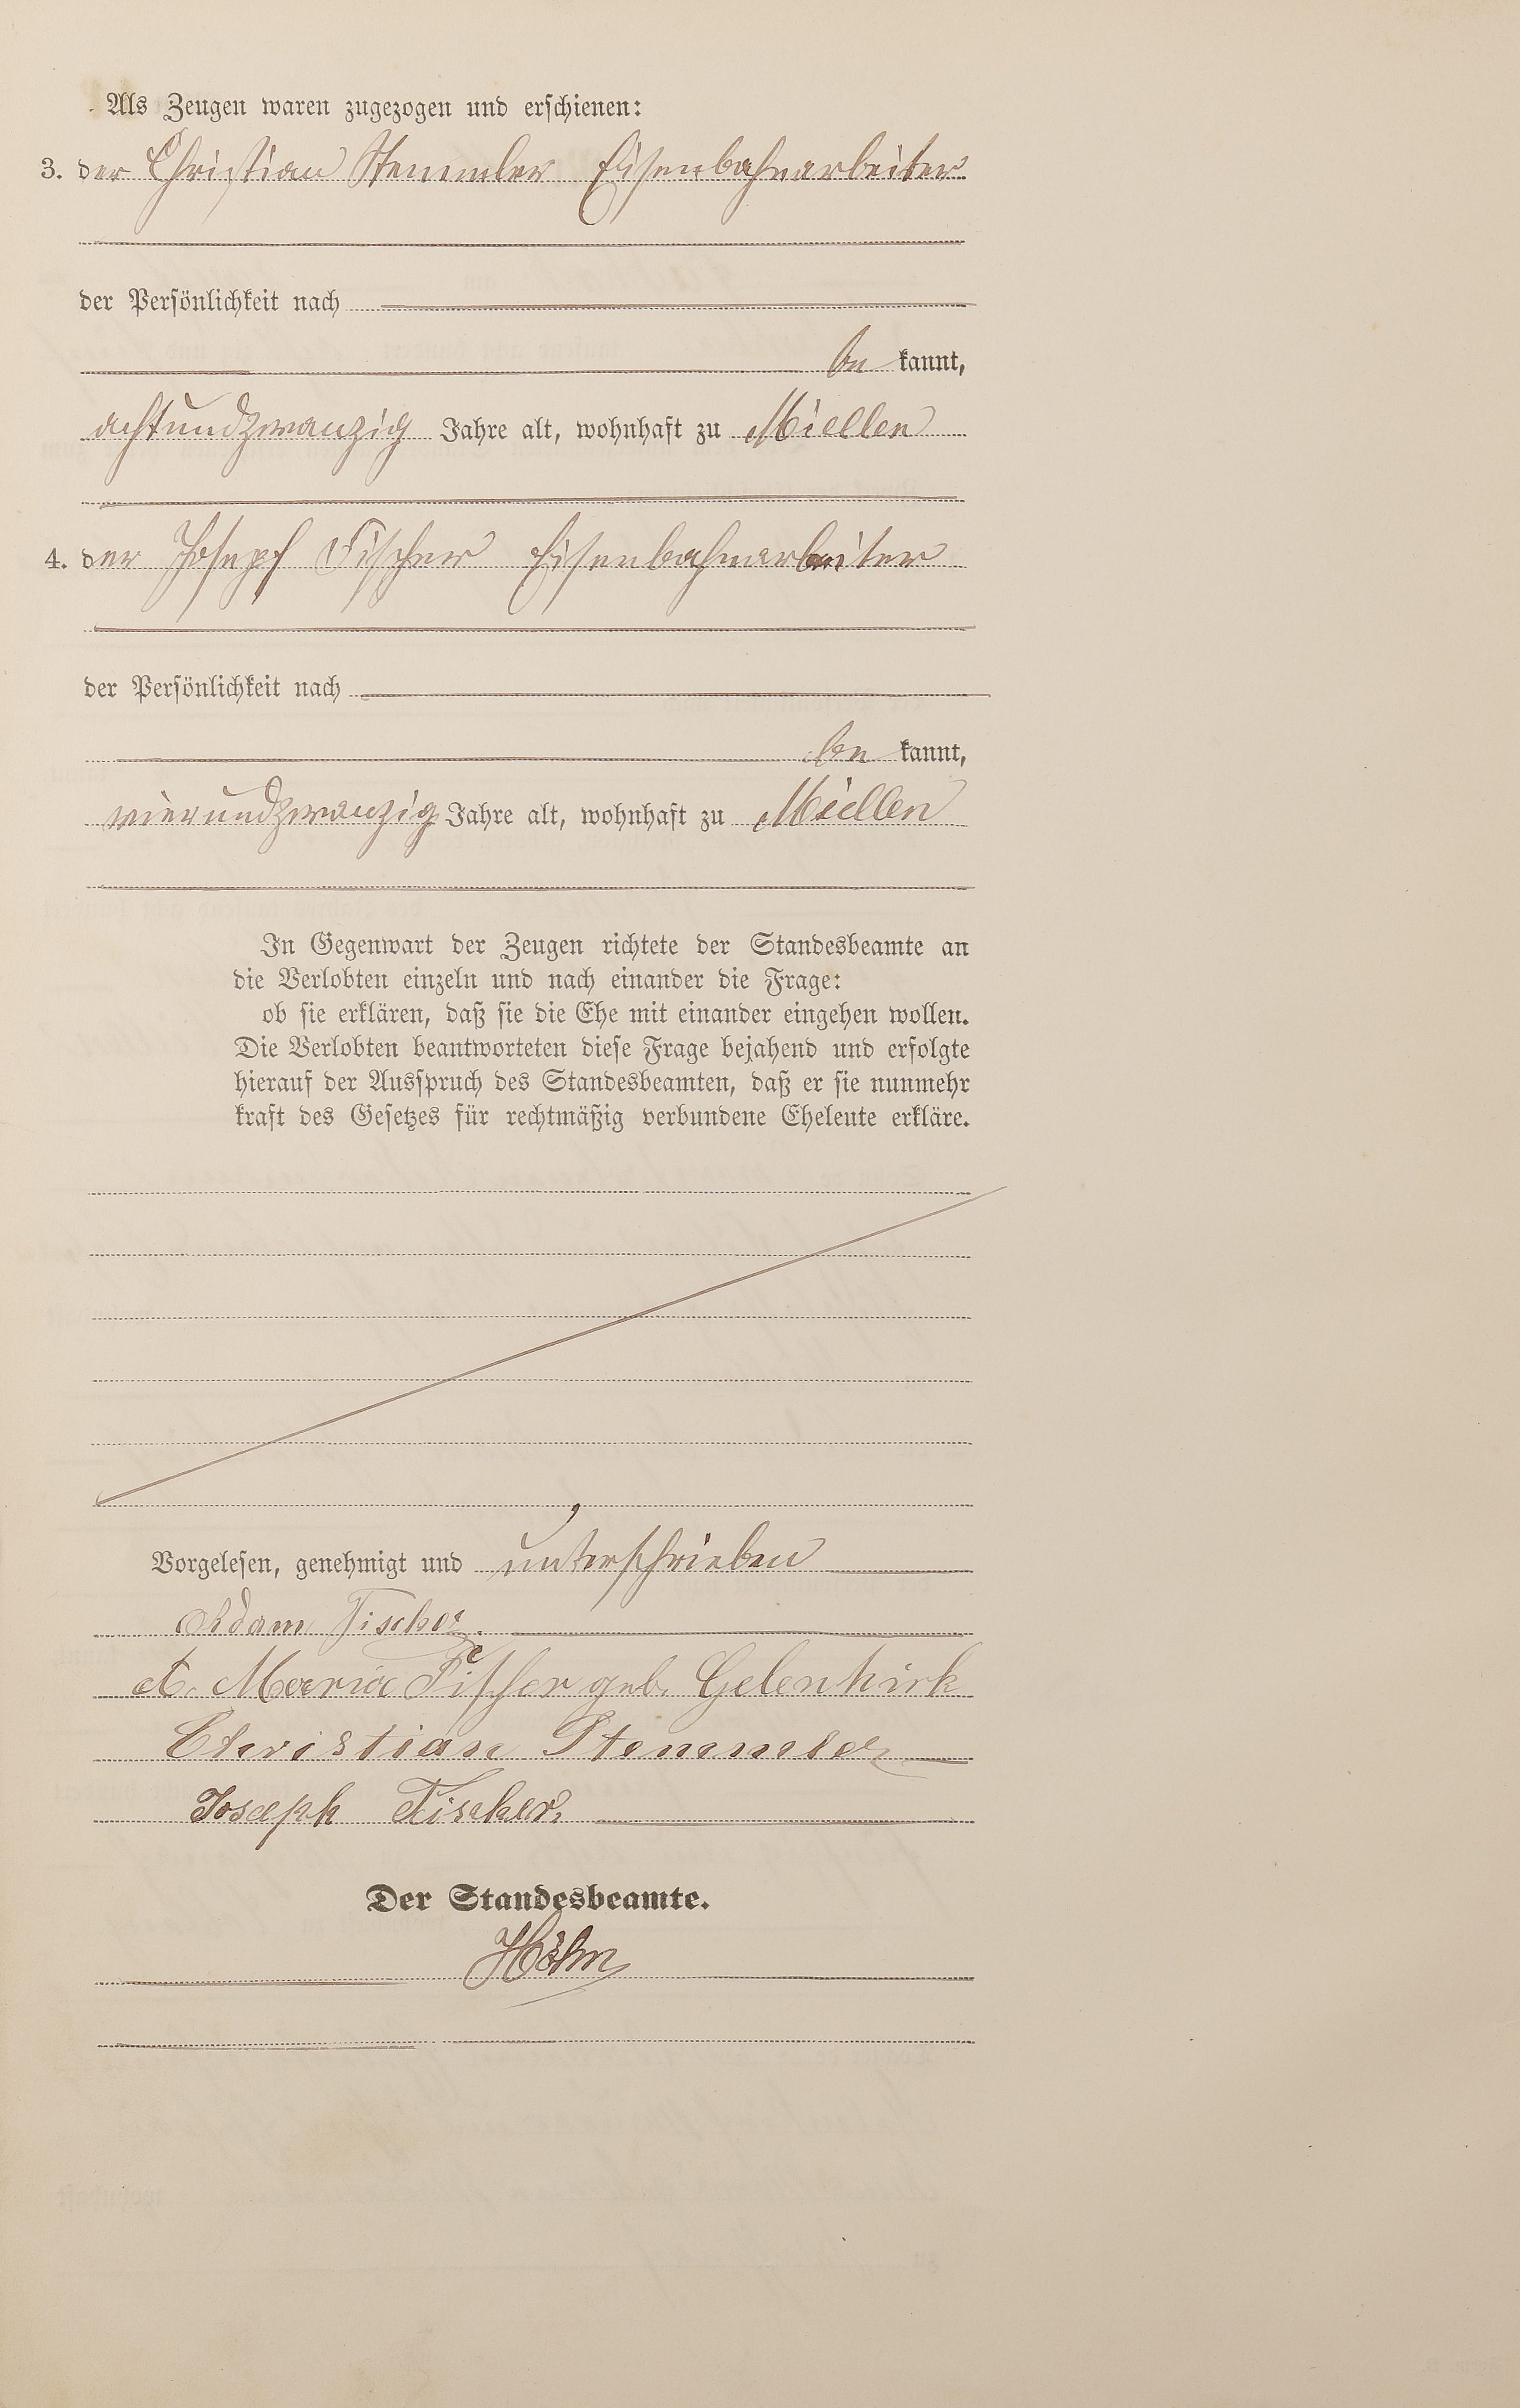 Als Zeugen waren zugezogen und erschienen:
3. der Christian Stemmler Eisenbahnarbeiter
der Persönlichkeit nach
be kannt,
achtundzwanzig Jahre alt, wohnhaft zu Miellen
4. der Joseph Fischer Eisenbahnarbeiter
der Persönlichkeit nach
be kannt,
vierundzwanzig Jahre alt, wohnhaft zu Miellen
In Gegenwart der Zeugen richtete der Standesbeamte an
die Verlobten einzeln und nach einander die Frage:
ob sie erklären, daß sie die Ehe mit einander eingehen wollen.
Die Verlobten beantworteten diese Frage bejahend und erfolgte
hierauf der Ausspruch des Standesbeamten, daß er sie nunmehr
kraft des Gesetzes für rechtmäßig verbundene Eheleute erkläre.
Vorgelesen, genehmigt und unterschrieben
Adam Fischer.
A. Maria Fischer geb. Gelenkirk
Christian Stemmler
Joseph Fischer.
Der Standesbeamte.
Höhn